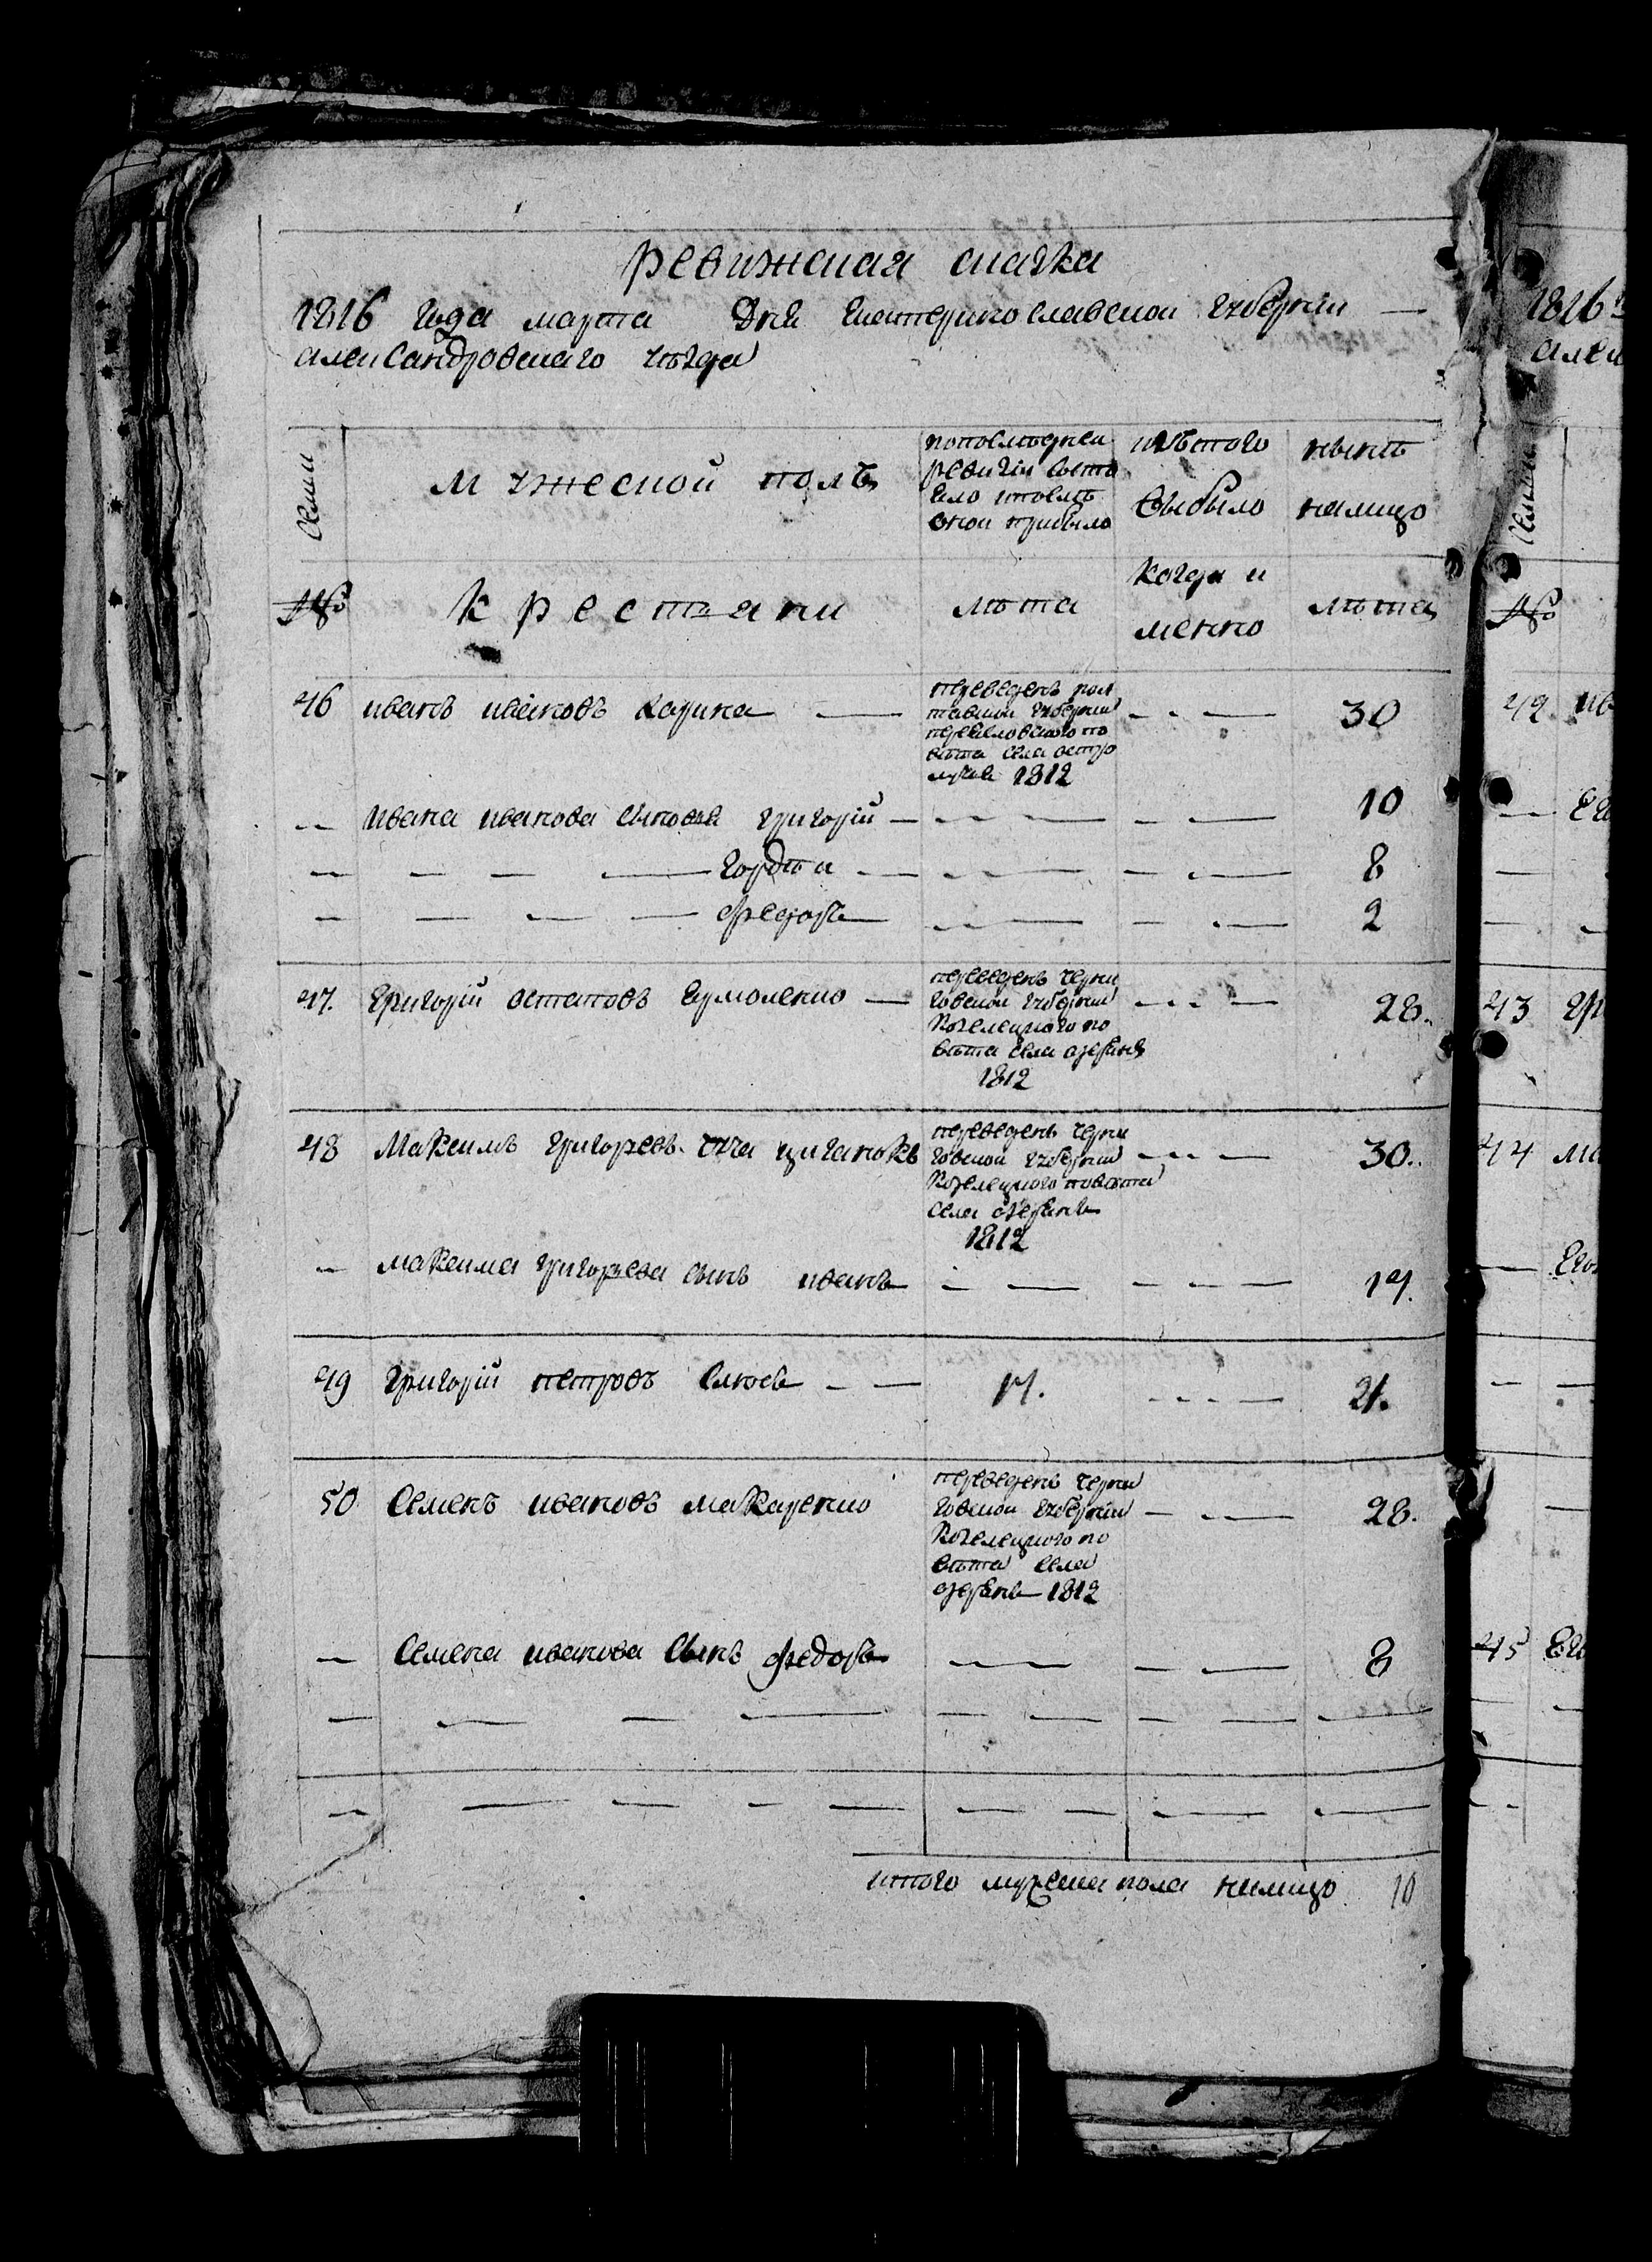 ревижская скаска
1816 года марта дня екатеринославской губернии
александровскаго уезда
Семьи
мужеской полъ
попоследнеи ревизии состояло ипосле оной прибыло
изътого выбыло
ныне налицо
№
крестьяни
лета
когда и менно
лета
46 иванъ ивановъ карпка
переведенъ полтавской губернии переясловского повета села 1812
30
ивана иванова сыновья григорій
10
гордеи
8
федоръ
2
47. григорій остаповъ ермоленко
переведенъ черниговской губернии козелецкого повета села озерянъ 1812
28.
48 Максимъ григорьевъ циганокъ
переведенъ черниговской губернии козелецкого повета села озерянъ 1812
30.
максима григорьева сынъ иванъ
14.
49 григорій петровъ
17.
21.
50 Семенъ ивановъ макаренко
переведенъ черниговской губернии козелецкого повета села озерянъ 1812
28.
семена иванова сынъ федоръ
8
итого мужеска пола налицо 10
1816
алек
Семьи
№
42 ив
43 гр
44 ма
45